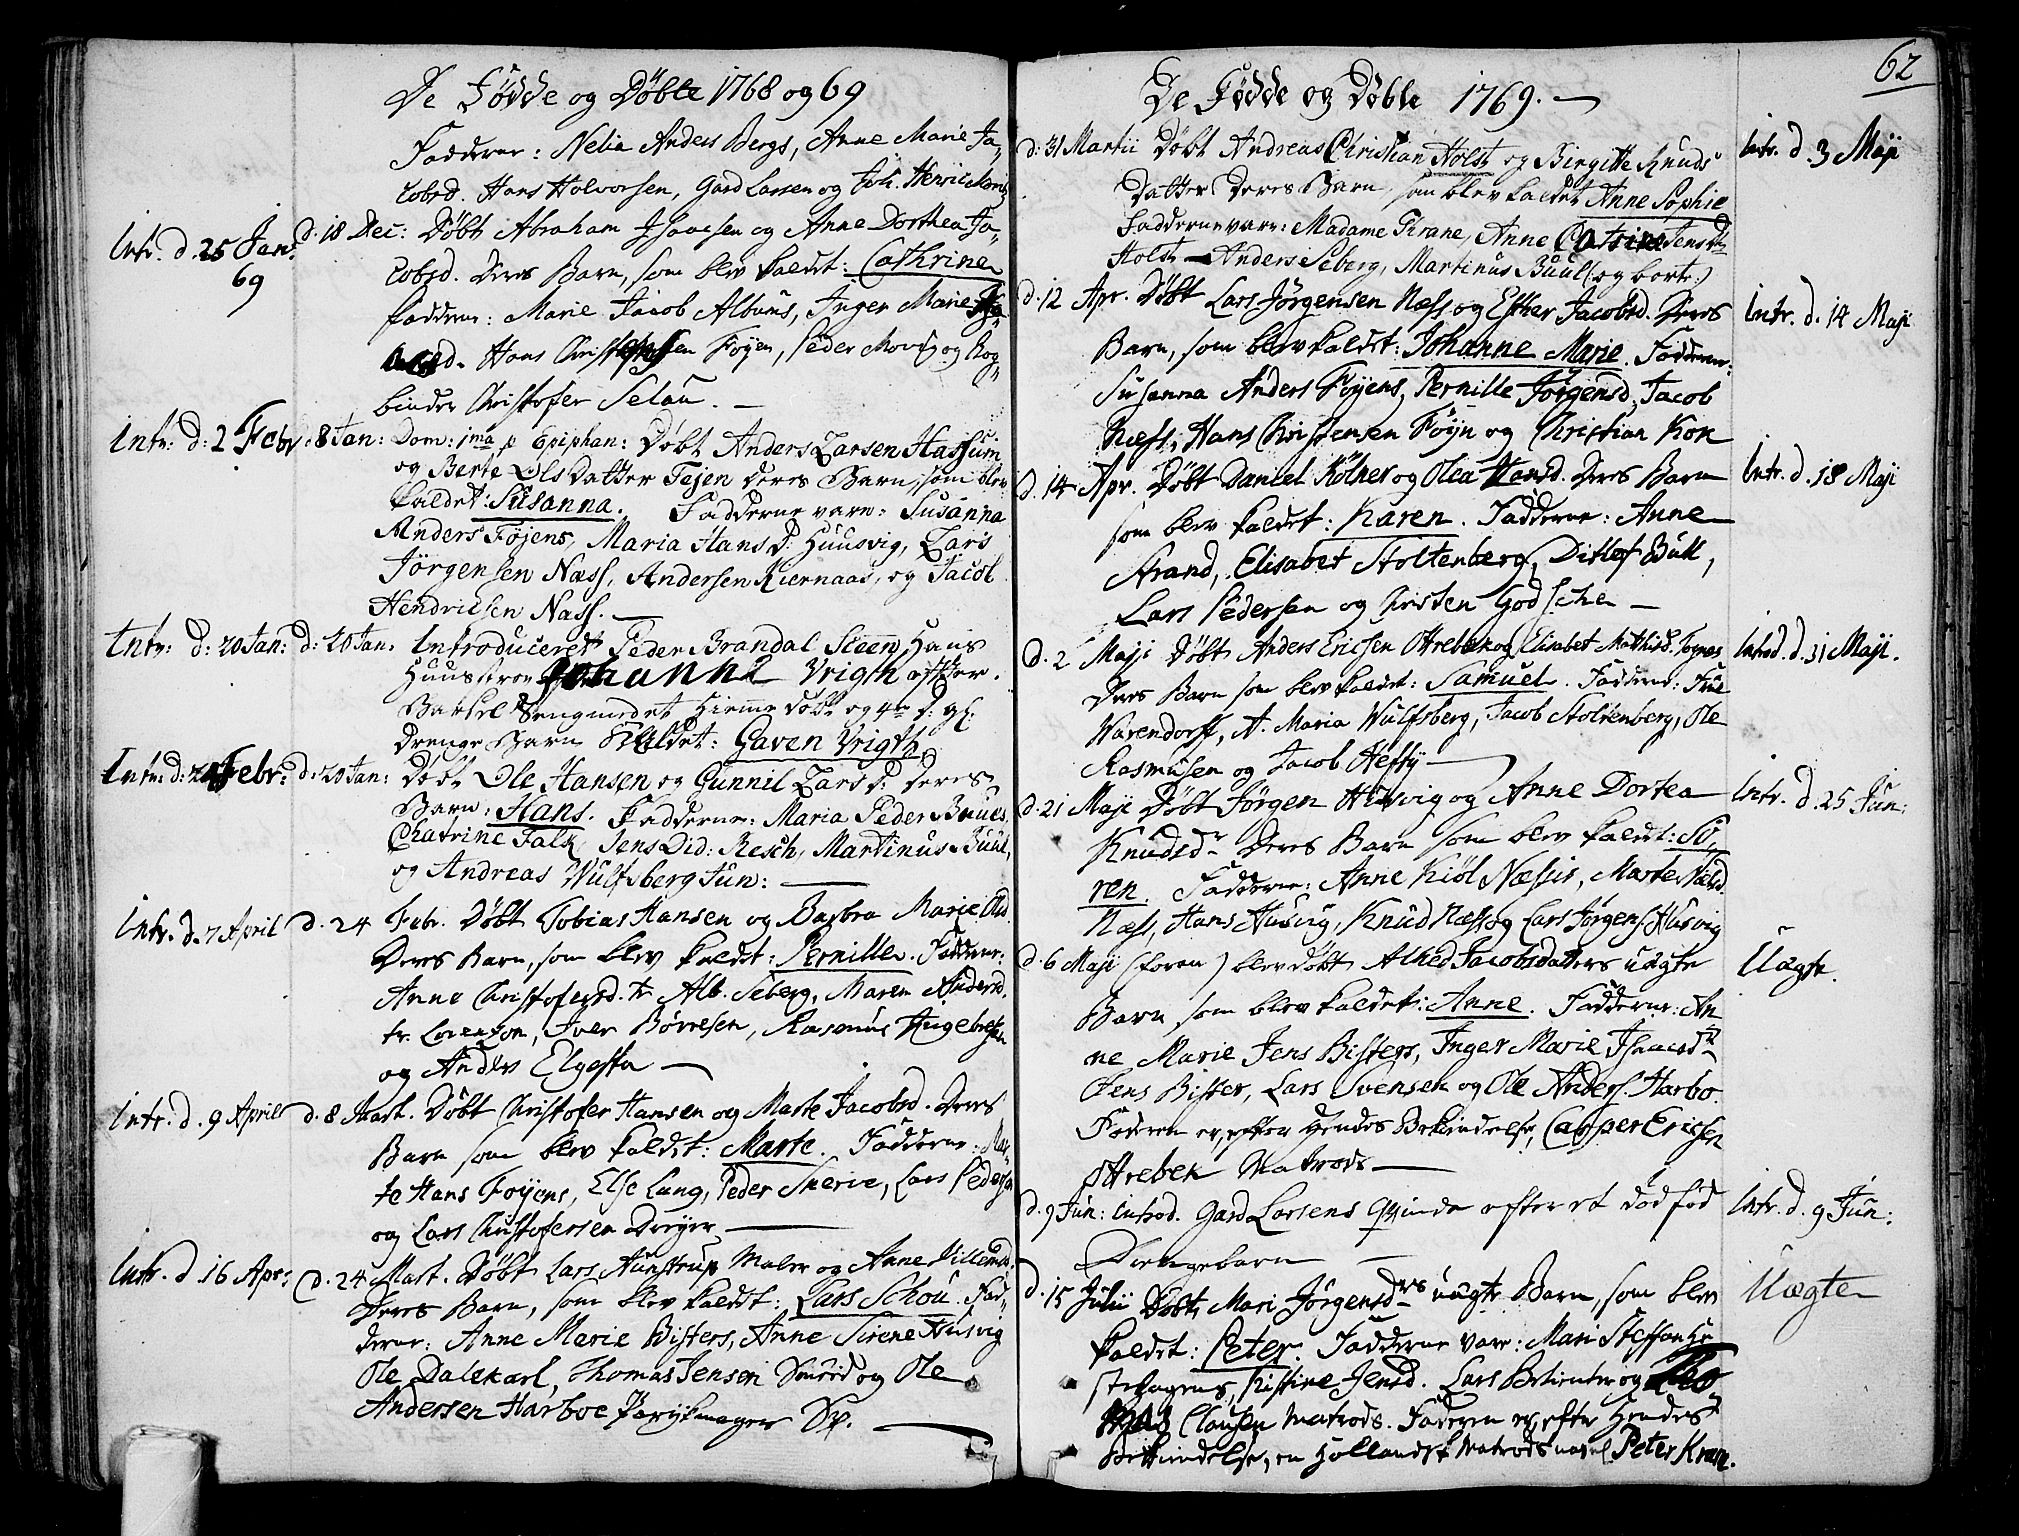 De Fødde og Døbte 1768 og 69
Fadderne: Nelia Anders Bergs, Anne Marie Ja-
cobsd. Hans Halvorsen, Gard Larsen og Joh. Henric
Intr. d. 25 Jan: 69
d. 18 Dec: Døbt Abraham Isaacsen og Anne Dorthea Ja-
cobsd. Deres Barn, som blev kaldet: Cathrine
Faddere: Marie Jacob Albums, Inger Marie
Hans Christensen Føyen, Peder Movig og Bog-
binder Christofer Selau. —
Intr: d: 2 Febr: 8 Jan: Dom: 1ma p Epiphan: Døbt Anders Larsen Hassum
og Berte Ols Datter Tejen deres Barn, som blev
kaldet: Susanna. Fadderne vare: Susanna
Anders Føjens, Maria Hans D: Huusvig, Lars
Jörgensen Næss, Andersen Kiernaas, og Jacob
Hendricsen Næss. —
Intr: d: 20 Jan: d: 20 Jan: Introduceret Peder Brandal Steen Hans
Huustroe Johanna Vrigth efter
Barsel Sengen det Hiemme døbt og 4de d: gl:
Drenge Barn Kaldet: Gaven Vrigth
Intr: d: 24 Febr: d: 20 Jan: Døbt Ole Hansen og Gunnil Lars D: deres
Barn: Hans. Fadderne: Maria Peder Bruus,
Chatrine Falk, Jens Did: Resch, Martinus Buul,
og Andreas Wulfsberg Jun: —
Intr. d. 7 April d. 24 Febr. Døbt Tobias Hansen og Barbra Marie Olsd.
Deres Barn, som blev kaldet: Pernille. Fadderne:
Anne Christofersd. tr Alb. Seberg, Maren Andersd.
tr. Lorentzon, Iver Børresen, Rasmus Ingebretsen
og Anders Elgesta —
Intr. d. 9 April d. 8 Mart. Døbt Christofer Hansen og Marte Jacobsd. Deres
Barn som blev kaldet: Marte. Fadderne: Mar-
te Hans Foyens, Else Lung, Peder Skerie, Lars Pedersen
og Lars Christofersen Dreyer —
Intr. d 16 Apr: d. 24 Mart. Døbt Lars Aunstrup Maler og Anne Villemsd.
Deres Barn, som blev kaldet: Lars Schou. Fad-
derne: Anne Marie Bisters, Anne Sirene Husvig
Ole Dalekarl, Thomas Jensen og Ole
Andersen Harboe Parykmager Sv. —
62
De Fødde og Døbte 1769. —
d. 31 Martii Døbt Andreas Christian Holst og Birgitte Knuds Intr. d. 3 Maji
Datter Deres Barn, som blev kaldet Anne Sophie
Fadderne vare: Madame Krane, Anne Catrine Jensd.
Holst — Anders Seberg, Martinus Buul (og borte.)
d. 12 Apr. Døbt Lars Jørgensen Næss og Esther Jacobsd. Deres Intr. d. 14 Maji
Barn, som blev kaldet: Johanne Marie. Fadderne:
Susanna Anders Foyens, Pernille Jørgensd, Jacob
Næss, Hans Christensen Føyn og Christian Kok
d. 14 Apr. Døbt Daniel Kölner og Olea Hansd. Deres Barn Intr. d. 18 Maji
som blev kaldet: Karen. Fadderne: Anne
Strand, Elisabet Stoltenberg, Ditlef Bull,
Lars Pedersen og Christen Godsche —
d. 2 Maji Døbt Anders Ericsen Ottrebek og Elisabet Mathisd. Introd. d. 31 Maji.
Deres Barn som blev kaldet: Samuel. Fadderne:
Warendorff, A. Maria Wulfsberg, Jacob Stoltenberg, Ole
Rasmusen og Jacob Hefty —
d. 21 Maji Døbt Jørgen Husvig og Anne Dortea Intr. d. 25 Jun:
Knudsdr Deres Barn som blev kaldet: Sö-
ren. Fadderne: Anne Kiöl Næssis, Marte Nilsd
Næss, Hans Husvig, Knud Næss og Lars Jørgens. Husvig
d. 6 Maji (foran) blev døbt Alhed Jacobsdatters uægte Uægte.
Barn, som blev kaldet: Anne. Fadderne: An-
ne Marie Jens Bisters, Inger Marie Isaacsdr
Jens Bister, Lars Svensen og Ole Anders. Harbo.
Faderen er, efter Hendes Bekiendelse, Casper Ericsen
Ottrebek Matrods —
d. 9 Jun: Introd. Gard Larsens Qvinde efter et dødfød Intr. d. 9 Jun:
Drengebarn —
d. 15 Julii Døbt Mari Jørgensdrs uægte Barn, som blev Uægte
kaldet: Peter. Fadderne vare: Mari Steffan He-
stehagens, Kistine Jensd. Lars Betienter og
Clausen Matrods. Faderen er, efter Hendes
Bekiendelse, en Hollandsk Matrods navnl. Peter Kram.